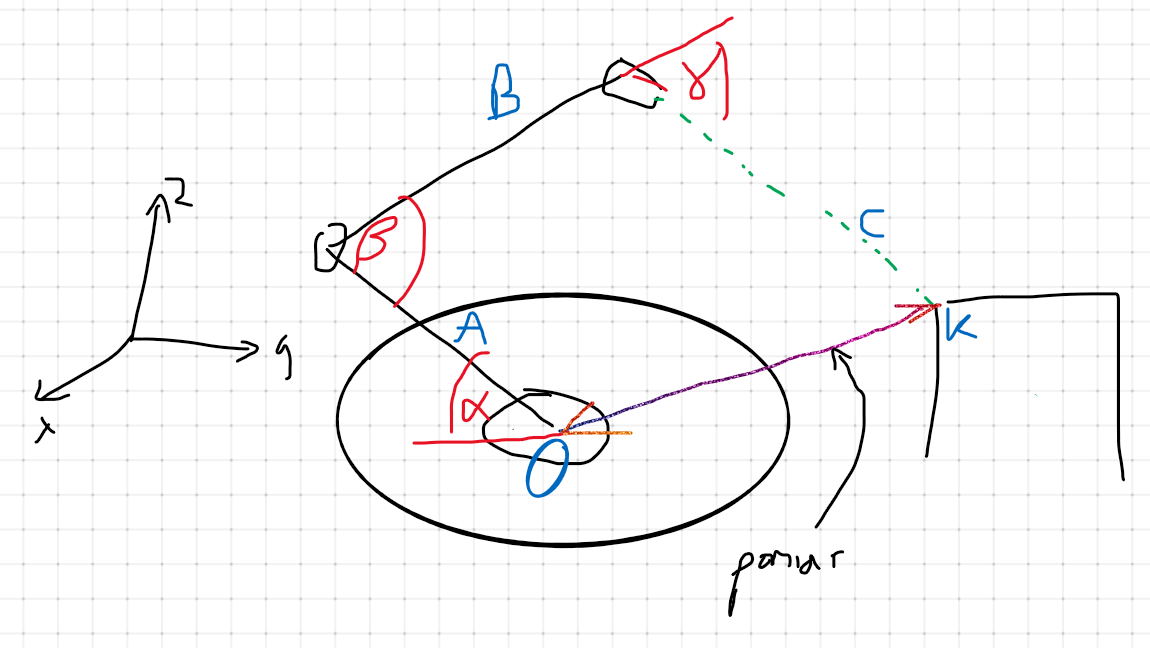 B
γ
z
β
C
y
A
K
α
x
O
pomiar